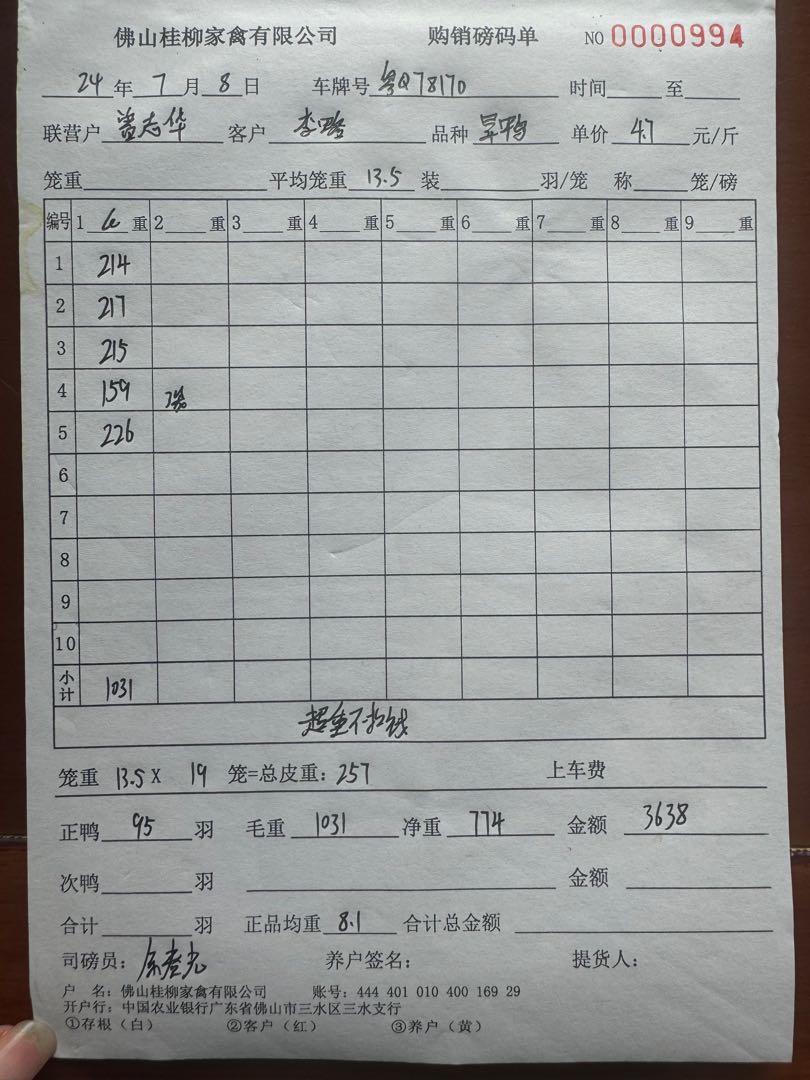 佛山桂柳家禽有限公司 购销磅码单 NO 0000994
24 年 7 月 8 日 车牌号 粤Q78170 时间 至
联营户 志华 客户 李 品种 旱鸭 单价 4.7 元/斤
笼重 平均笼重 13.5 装 羽/笼 称 笼/磅
编号 1 重 2 重 3 重 4 重 5 重 6 重 7 重 8 重 9 重
1 214
2 217
3 215
4 159
5 226
6
7
8
9
10
小计 1031
超重不扣钱
笼重 13.5 X 19 笼=总皮重: 257 上车费
正鸭 95 羽 毛重 1031 净重 774 金额 3638
次鸭 羽 金额
合计 羽 正品均重 8.1 合计总金额
司磅员: 养户签名: 提货人:
户 名: 佛山桂柳家禽有限公司 账号: 444 401 010 400 169 29
开户行: 中国农业银行广东省佛山市三水区三水支行
①存根(白) ②客户(红) ③养户(黄)